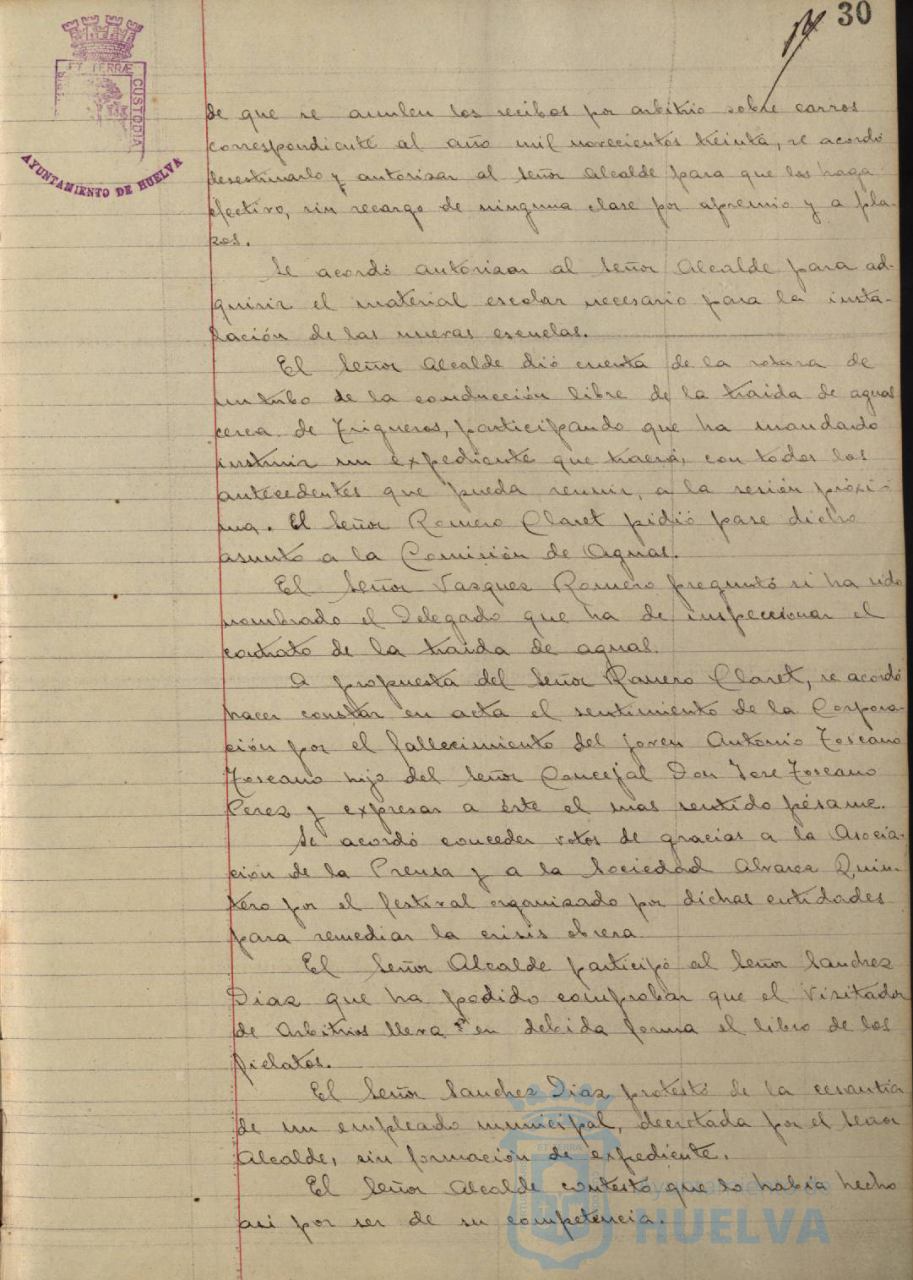 30
PORTUS MARIS ET TERRÆ CUSTODIA
AYUNTAMIENTO DE HUELVA
de que se anulen los recibos por arbitrio sobre carros
correspondiente al año mil novecientos treinta, se acordó
desestimarlo y autorizar al Señor Alcalde para que los haga
efectivo, sin recargo de ninguna clase por apremio y a pla-
zos.
Se acordó autorizar al Señor Alcalde para ad-
quirir el material escolar necesario para la insta-
lación de las nuevas escuelas.
El Señor Alcalde dió cuenta de la rotura de
un tubo de la conducción libre de la traida de aguas
cerca de Trigueros, participando que ha mandado
instruir un expediente que traerá, con todos los
antecedentes que pueda reunir, a la sesión próxi-
ma. El Señor Romero Claret pidió pase dicho
asunto a la Comisión de Aguas.
El Señor Vasquez Romero preguntó si ha sido
nombrado el Delegado que ha de inspeccionar el
contrato de la traida de aguas.
A propuesta del Señor Romero Claret, se acordó
hacer constar en acta el sentimiento de la Corpora-
ción por el fallecimiento del joven Antonio Toscano
Toscano hijo del Señor Concejal Don Jose Toscano
Perez y expresar a éste el mas sentido pésame.
Se acordó conceder votos de gracias a la Asocia-
ción de la Prensa y a la Sociedad Alvarez Quin-
tero por el festival organizado por dichas entidades
para remediar la crisis obrera
El Señor Alcalde participó al Señor Sanchez
Diaz que ha podido comprobar que el Visitador
de Arbitrios lleva en debida forma el libro de los
fielatos.
El Señor Sanchez Diaz protestó de la cesantía
de un empleado municipal, decretada por el Señor
Alcalde, sin formación de expediente.
El Señor Alcalde contestó que lo había hecho
asi por ser de su competencia.
Ayuntamiento de
HUELVA